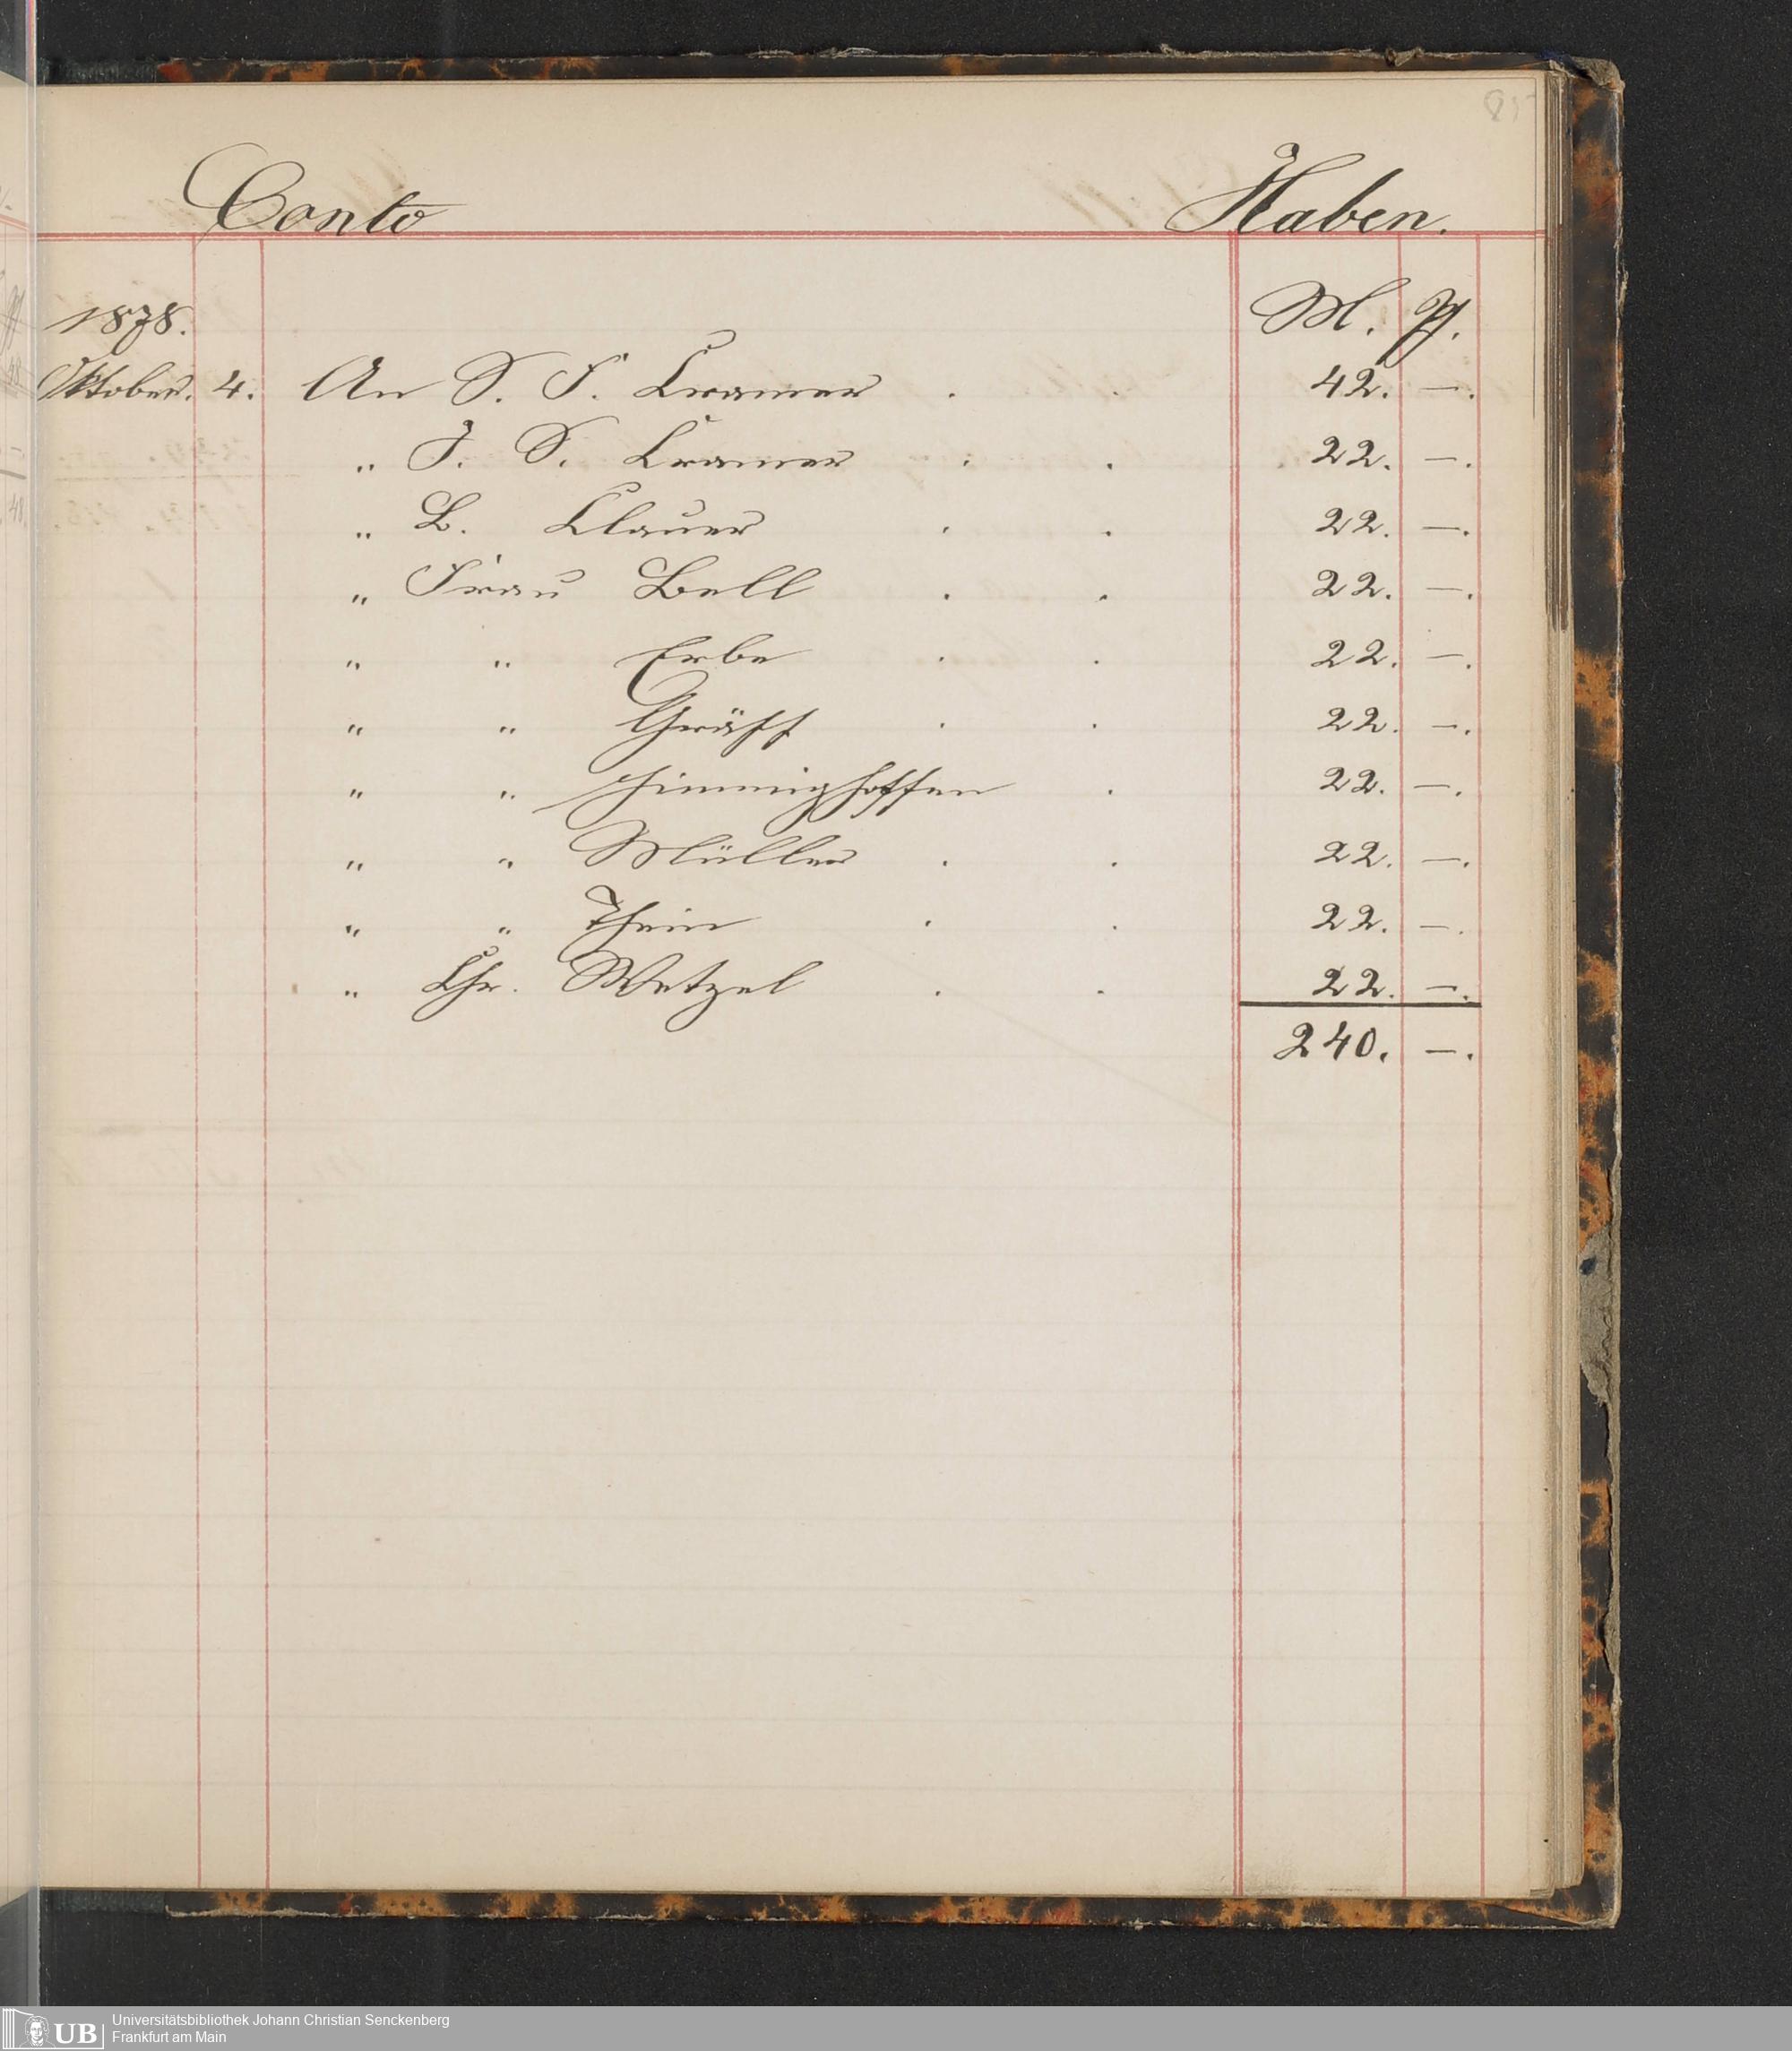 85
Conto Haben.
1878. M. Pf.
Oktober. 4. An S. F. Cramer . . 42. —.
„ J. S. Cramer . . 22. —.
„ B. Clauer . . 22. —.
„ Frau Bell . . 22. —.
„ „ Erbe . . 22. —.
„ „ Gräff . . 22. —.
„ „ Himmighoffen . 22. —.
„ „ Müller . . 22. —.
„ „ Thein . . 22. —.
„ Chr. Wetzel . . 22. —.
240. —.
UB Universitätsbibliothek Johann Christian Senckenberg
Frankfurt am Main